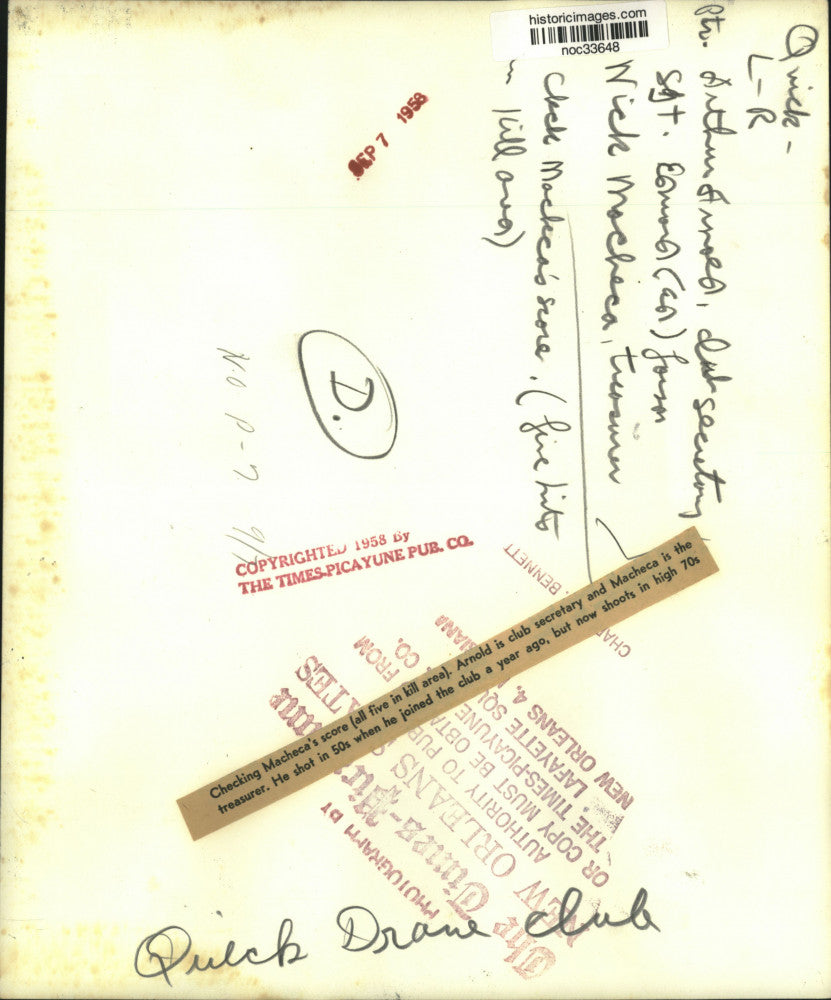 historicimages.com
noc33648
Quick-
L-R
Ptr. Arthur Arnold, club secretary
Sgt. Edmond (Ed)
Nick Macheca, treasurer
Check Macheca's score. (five hits
in kill area)
SEP 7 1958
D.
N.O P-7 9/7
COPYRIGHTED 1958 By
THE TIMES-PICAYUNE PUB. CO.
Checking Macheca's score (all five in kill area). Arnold is club secretary and Macheca is the
treasurer. He shot in 50s when he joined the club a year ago, but now shoots in high 70s
PHOTOGRAPH BY
The Times-Pic
NEW ORLEANS STATES
AUTHORITY TO PUB
OR COPY MUST BE OBTA FROM
THE TIMES-PICAYUNE CO.
LAFAYETTE SQU
NEW ORLEANS 4, SIANA
CHA . BENNETT
Quick Draw club